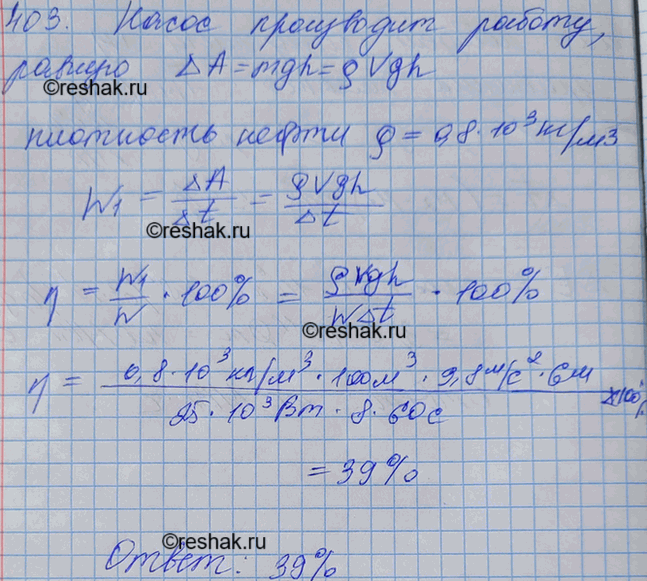 403. Насос производит работу,
равную ΔA = mgh = ρVgh
©reshak.ru
плотность нефти ρ = 0,8·10³ кг/м³
N₁ = ΔA/Δt = ρVgh/Δt
©reshak.ru
η = N₁/N · 100% = ρVgh/NΔt · 100%
©reshak.ru
η = 0,8·10³ кг/м³ · 100м³ · 9,8 м/с² · 6м / 25·10³ Вт · 8·60с ×100%
= 39%
©reshak.ru
Ответ: 39%